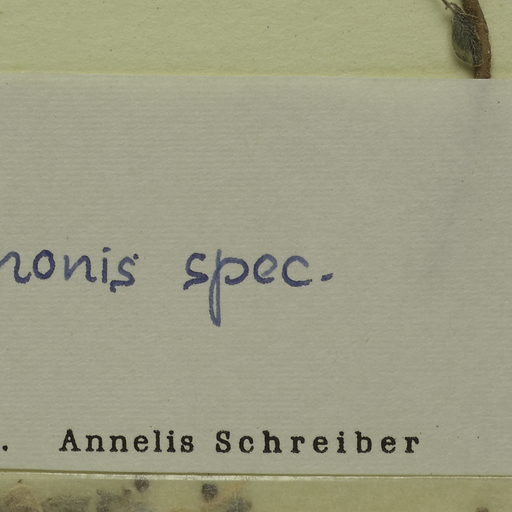 nonis spec.
. Annelis Schreiber